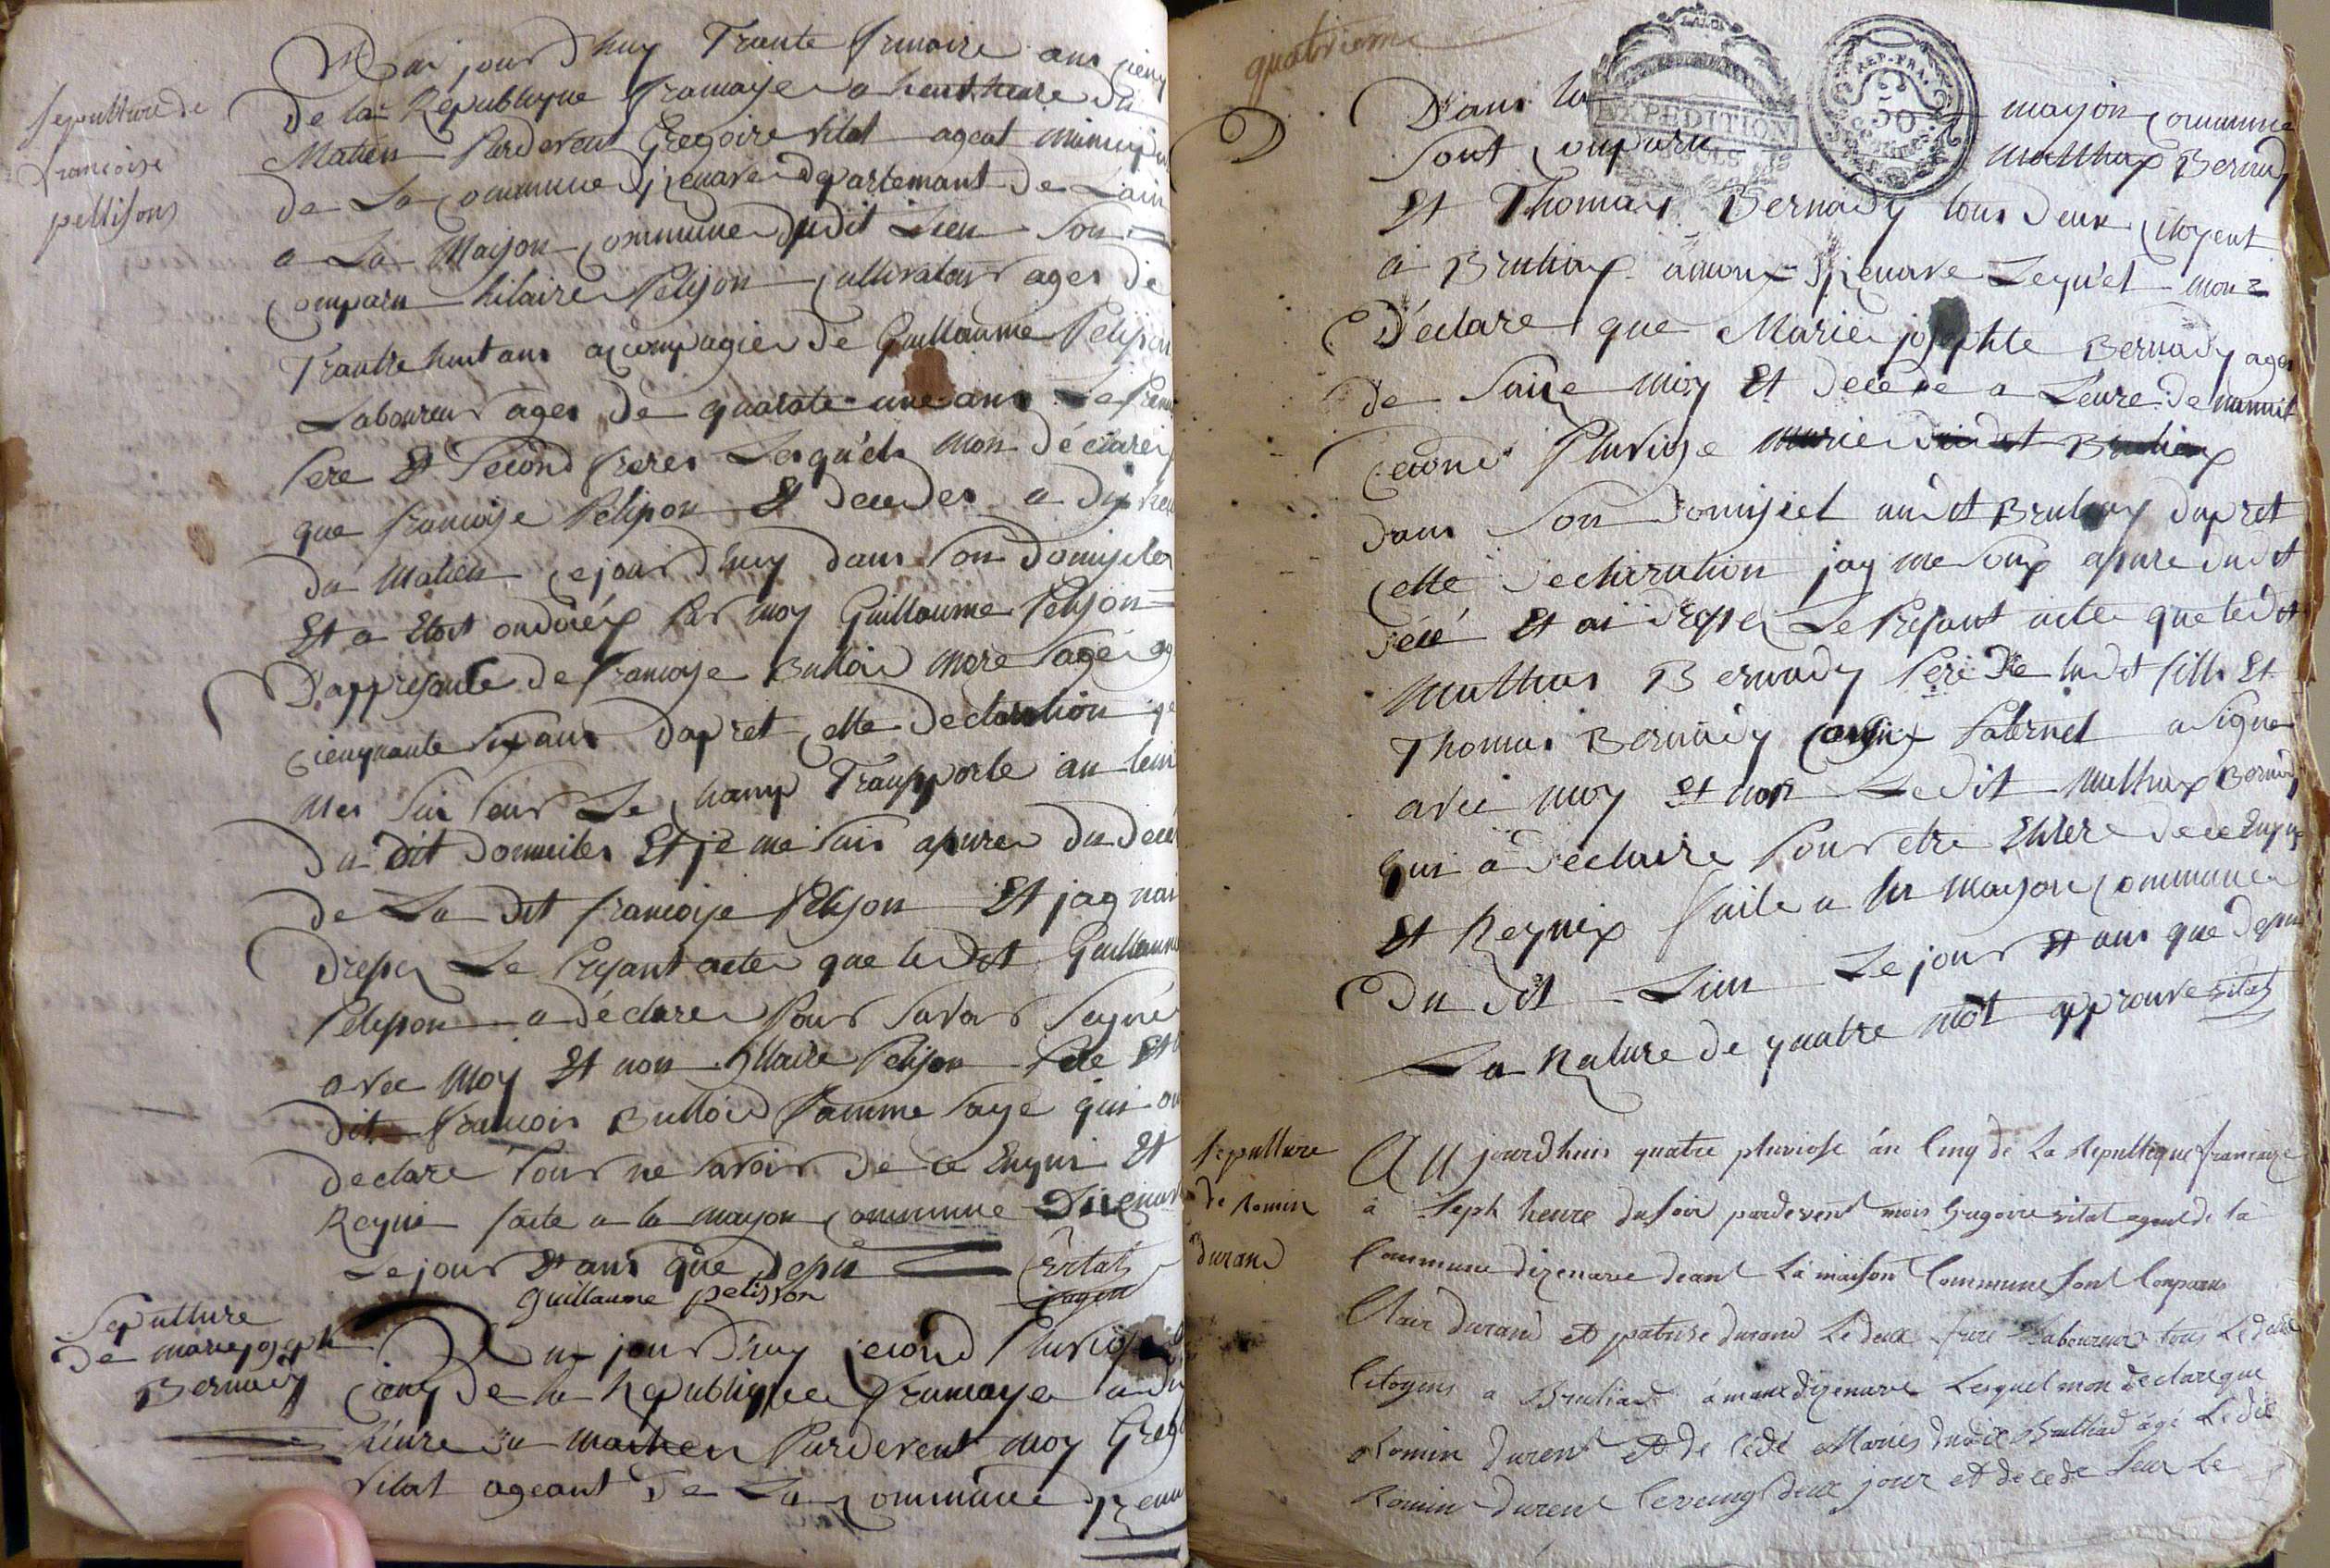 sepulture de
francoise
pellisons
jour d'huy Trante frimaire ans cienq
De la Republique francaise a heut heure du
Matien Pardevent Gregoire Vitat ageat municip
de La Commune dizenave departemant de Lain
a La Maison commune dudit Lieu Son
Comparu hilaire Pelison cultivateur ages de
Trantre huit ans acompagier de Guillaume Pelison
Laboureur ages de quarate une ans Le
Pere Et Second freres Lesquels mon déclare
que francoise Pelison Et decedes a dix heu
du Matien ce jour d'huy dans son Domisiler
Et a Etoit ondoiéx Par moy Guillaume Pelison
D'appresante de francoise Bulliod more sage ag
cienquante six ans d'apret cette declaration je
mes sui seur Le champ Transporte au leiu
du dit Domiciler Et je me suis asure du decé
de La dit francoise Pelison Et jag nai
dresser Le Presant acte que le dit Guillaume
Pelison a déclare Pour savoir seigne
avec moy Et non hillaire Pelison Pere Et
dit francois Bulliod famme sage qui on
declare Pour ne savoir de ce Enquis Et
Requi faite a la mayon commune Dizenave
Le jour Et ans que desu Vitat
guillaume pelisson agent
Sepulture
de marie joseph
Bernady
jour d'huy second Pluviose
cienq de la Republique francaise a di
heure du matien Pardevent moy Greg
Vitat ageant de La commune dizenav
quatrieme
Dans la mayon commune
EXPEDITION
LA LOI
REP. FRA.
50
CENTIMES
Sont comparu Matthieux Bernady
Et Thomas Bernady tous deux citoyent
a Brulliax amoux dizenave Lequel mon
Déclare que Marie josephte Bernady ages
de saise moy Et decede a L'eure de mamuit
cecond Pluviose
dans son Domisiel audit Brulliax dapret
cette declaration jay me suis asure dudit
décé Et ai dresser Le Presant acter que ledit
Mathieu Bernady Pere de ladit fille Et
Thomas Bernady cousin Paternel a signer
avec moy Et non Le dit Mathieux Bernady
qui a declaire Pour etre Eltere de ce Enquy
Et Requix faite a la mayon commune
Du dit Lieu Le jour Et ans que desu
La Rature de quatre mot approuve Vitat
sepulture
de Romin
durand
Aujourd'huis quatre pluviose an cinq de La Republique francaise
à seph heure du soir pardevent mois Gregoire vitat agent de la
Commune dizenave deant La maison Commune sont Comparus
Clair durand et patrise durand Le deux frere Laboureur tous Le deux
Citoyens a Brulliad amaux dizenave Lesquel mon declare que
Romin durent et de cédé Maries dudit Brulliad âgé Le dit
Romin durent Ceveing deux jour et decede seur Le